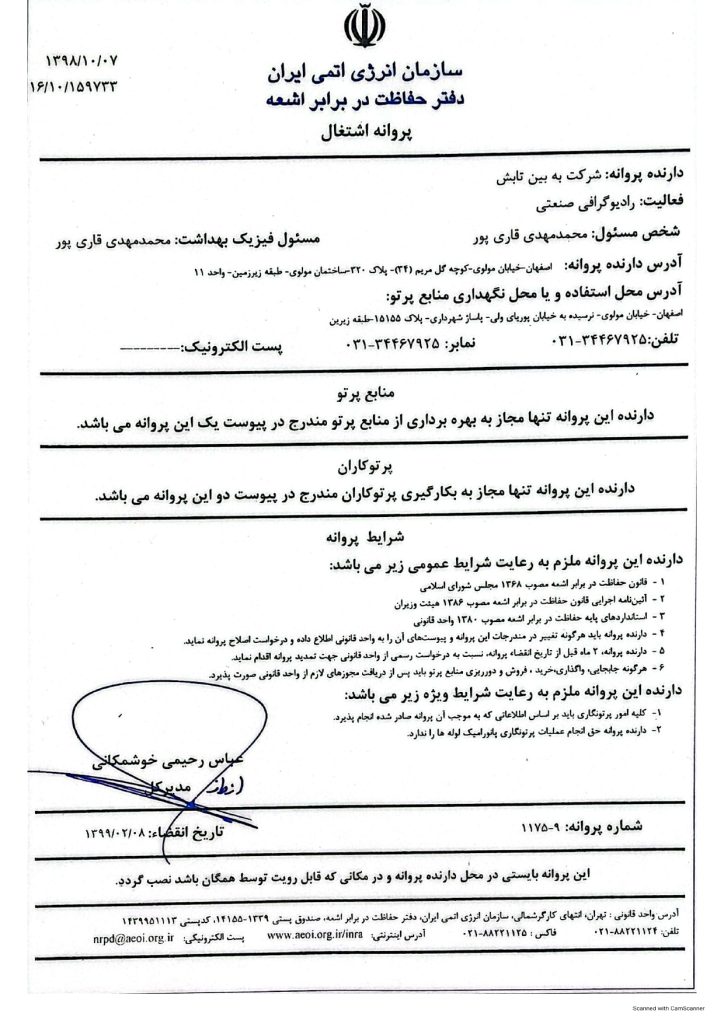 ۱۳۹۸/۱۰/۰۷
۱۶/۱۰/۱۵۹۷۳۳
سازمان انرژی اتمی ایران
دفتر حفاظت در برابر اشعه
پروانه اشتغال
دارنده پروانه: شرکت به بین تابش
فعالیت: رادیوگرافی صنعتی
شخص مسئول: محمدمهدی قاری پور مسئول فیزیک بهداشت: محمدمهدی قاری پور
آدرس دارنده پروانه: اصفهان-خیابان مولوی-کوچه گل مریم (۳۴)- پلاک ۳۲۰-ساختمان مولوی- طبقه زیرزمین- واحد ۱۱
آدرس محل استفاده و یا محل نگهداری منابع پرتو:
اصفهان- خیابان مولوی- نرسیده به خیابان پوریای ولی- پاساژ شهرداری- پلاک ۱۵۱۵۵-طبقه زیرین
تلفن:۰۳۱-۳۴۴۶۷۹۲۵ نمابر: ۰۳۱-۳۴۴۶۷۹۲۵ پست الکترونیک:---------
منابع پرتو
دارنده این پروانه تنها مجاز به بهره برداری از منابع پرتو مندرج در پیوست یک این پروانه می باشد.
پرتوکاران
دارنده این پروانه تنها مجاز به بکارگیری پرتوکاران مندرج در پیوست دو این پروانه می باشد.
شرایط پروانه
دارنده این پروانه ملزم به رعایت شرایط عمومی زیر می باشد:
۱- قانون حفاظت در برابر اشعه مصوب ۱۳۶۸ مجلس شورای اسلامی
۲- آئین‌نامه اجرایی قانون حفاظت در برابر اشعه مصوب ۱۳۸۶ هیئت وزیران
۳- استانداردهای پایه حفاظت در برابر اشعه مصوب ۱۳۸۰ واحد قانونی
۴- دارنده پروانه باید هرگونه تغییر در مندرجات این پروانه و پیوست‌های آن را به واحد قانونی اطلاع داده و درخواست اصلاح پروانه نماید.
۵- دارنده پروانه، ۲ ماه قبل از تاریخ انقضاء پروانه، نسبت به درخواست رسمی از واحد قانونی جهت تمدید پروانه اقدام نماید.
۶- هرگونه جابجایی، واگذاری،خرید ، فروش و دورریزی منابع پرتو باید پس از دریافت مجوزهای لازم از واحد قانونی صورت پذیرد.
دارنده این پروانه ملزم به رعایت شرایط ویژه زیر می باشد:
۱- کلیه امور پرتونگاری باید بر اساس اطلاعاتی که به موجب آن پروانه صادر شده انجام پذیرد.
۲- دارنده پروانه حق انجام عملیات پرتونگاری پانورامیک لوله ها را ندارد.
عباس رحیمی خوشمکانی
مدیرکل
شماره پروانه: ۹-۱۱۷۵ تاریخ انقضاء: ۱۳۹۹/۰۲/۰۸
این پروانه بایستی در محل دارنده پروانه و در مکانی که قابل رویت توسط همگان باشد نصب گردد.
آدرس واحد قانونی : تهران، انتهای کارگرشمالی، سازمان انرژی اتمی ایران، دفتر حفاظت در برابر اشعه، صندوق پستی ۱۳۳۹-۱۴۱۵۵، کدپستی ۱۴۳۹۹۵۱۱۱۳
تلفن: ۰۲۱-۸۸۲۲۱۱۲۴ فاکس : ۰۲۱-۸۸۲۲۱۱۲۵ آدرس اینترنتی: www.aeoi.org.ir/inra پست الکترونیکی: nrpd@aeoi.org.ir
Scanned with CamScanner